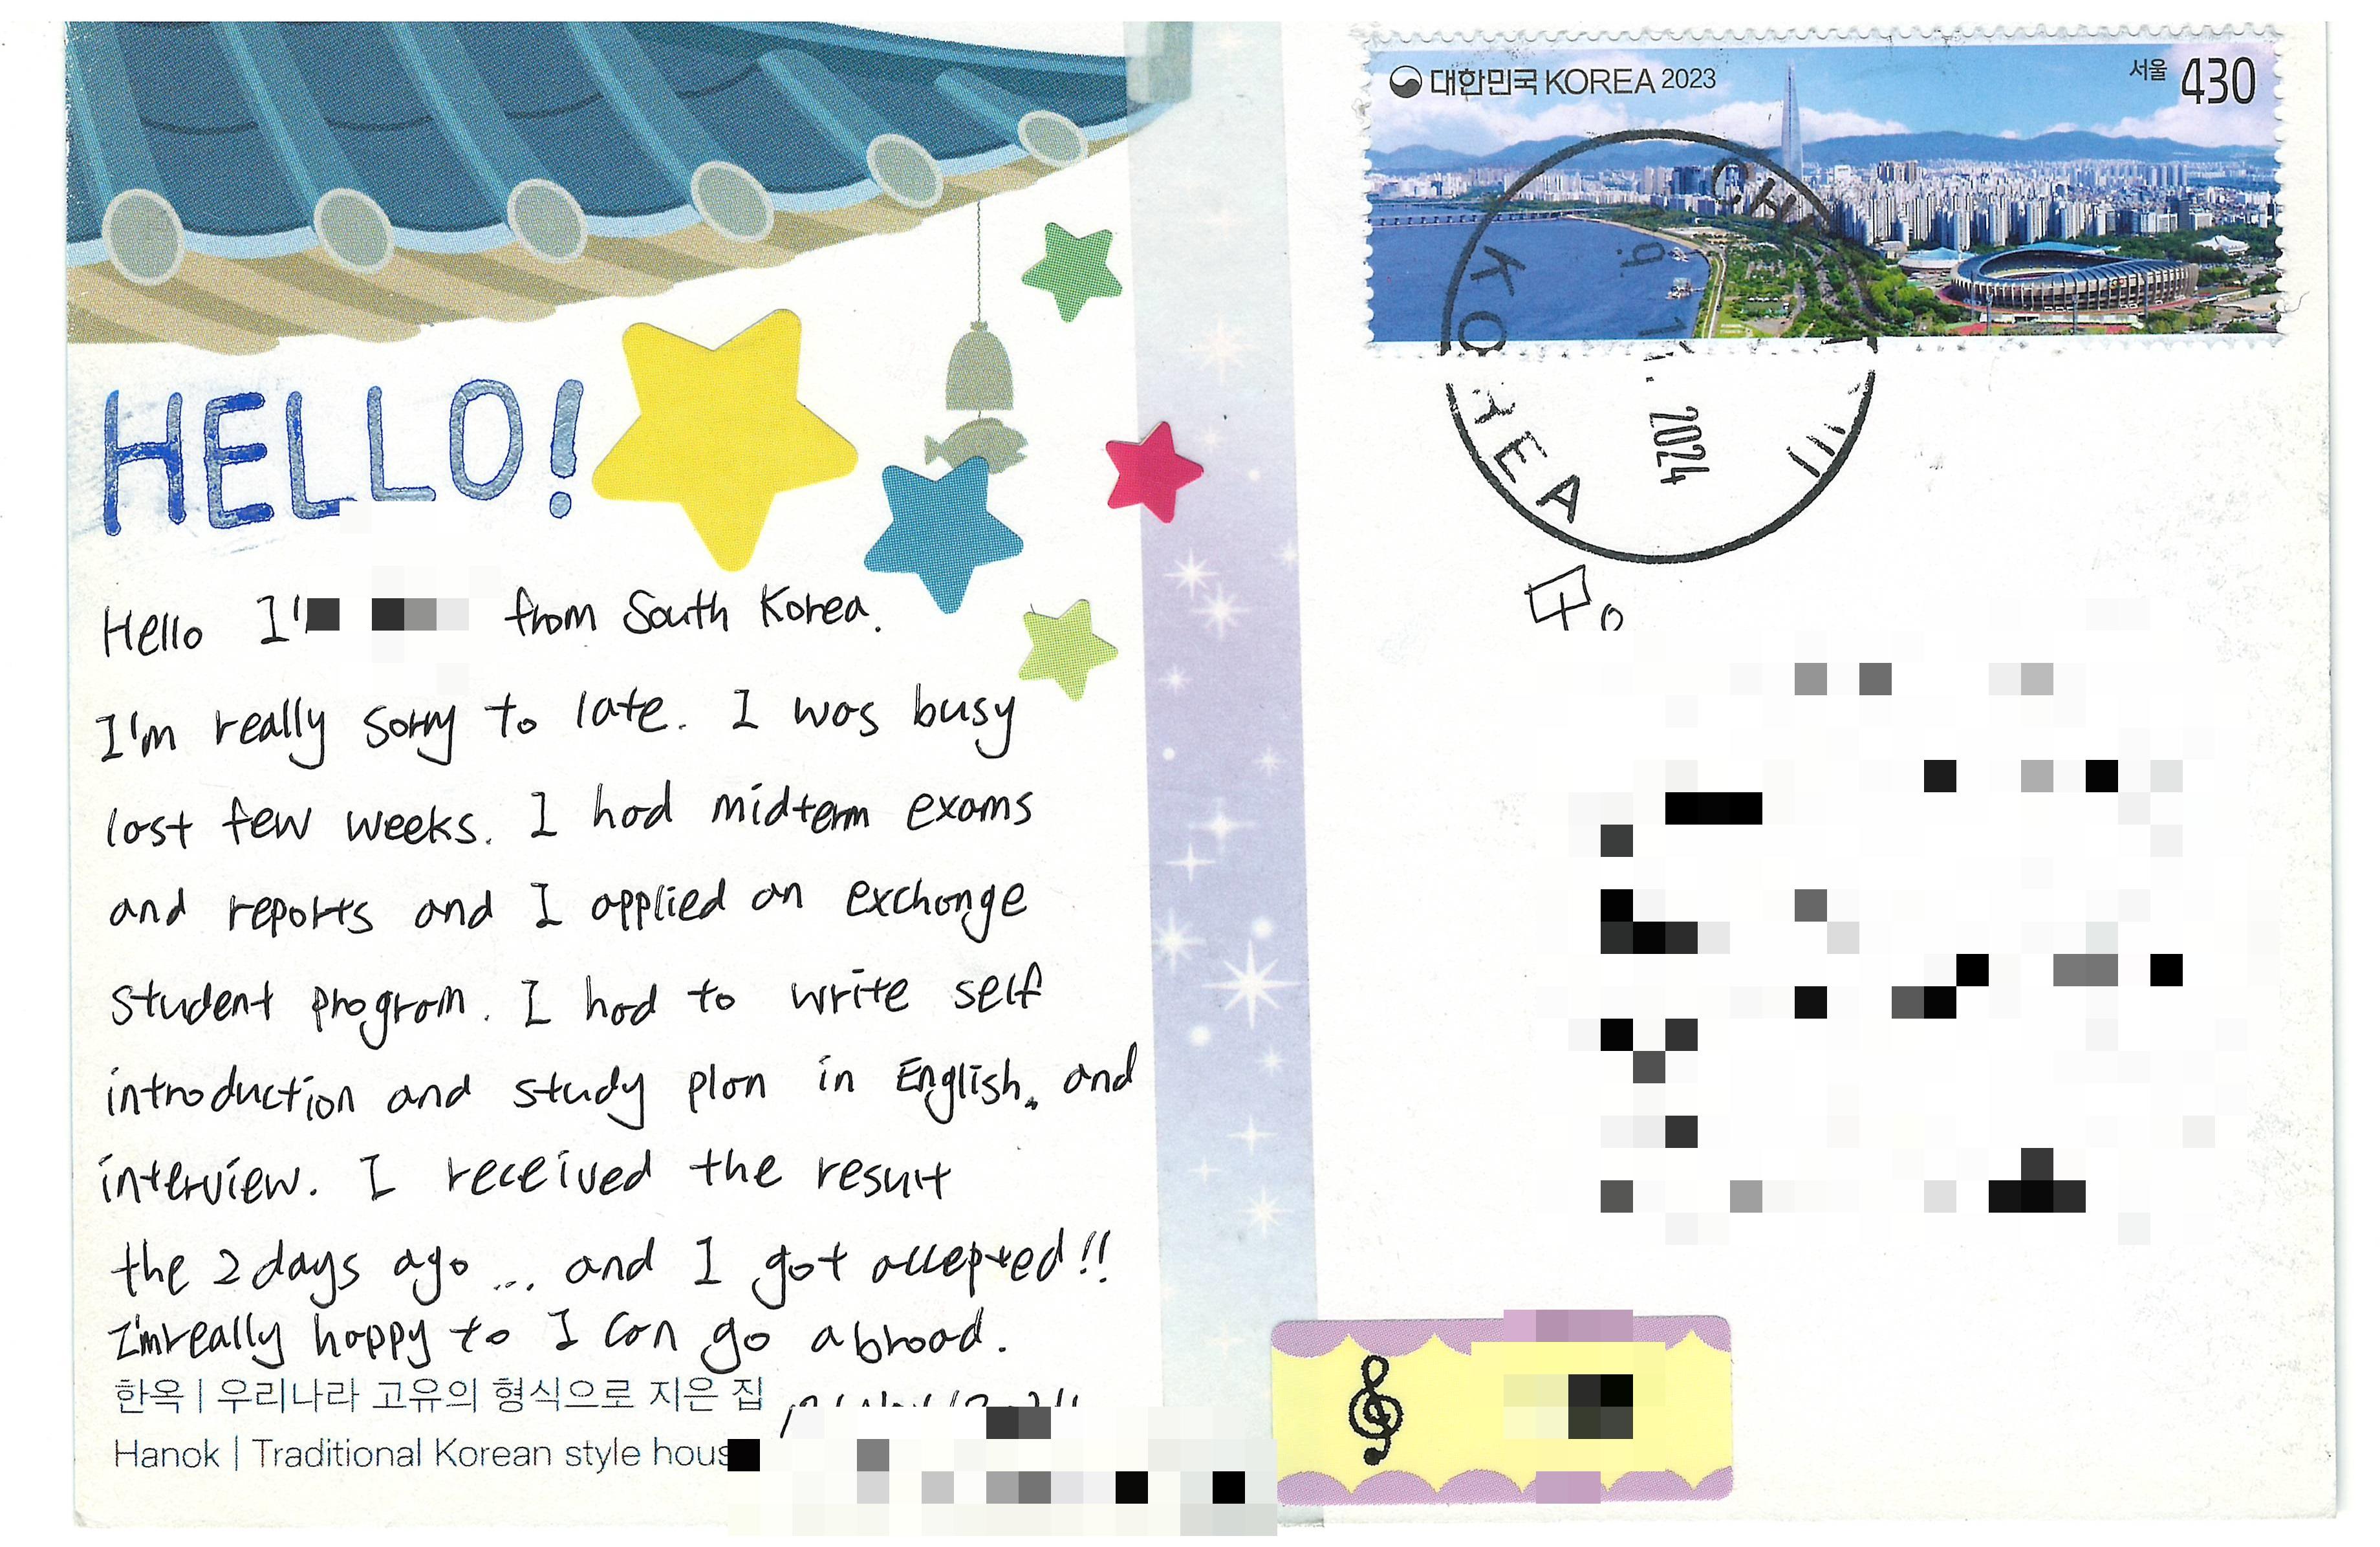 HELLO!
Hello I' from South Korea.
I'm really sorry to late. I was busy
last few weeks. I had midterm exams
and reports and I applied an exchange
student program. I had to write self
introduction and study plan in English. and
interview. I received the result
the 2days ago ... and I got accepted!!
I'm really happy to I can go abroad.
한옥 | 우리나라 고유의 형식으로 지은 집
Hanok | Traditional Korean style hous
대한민국 KOREA 2023
서울 430
KOREA
2024